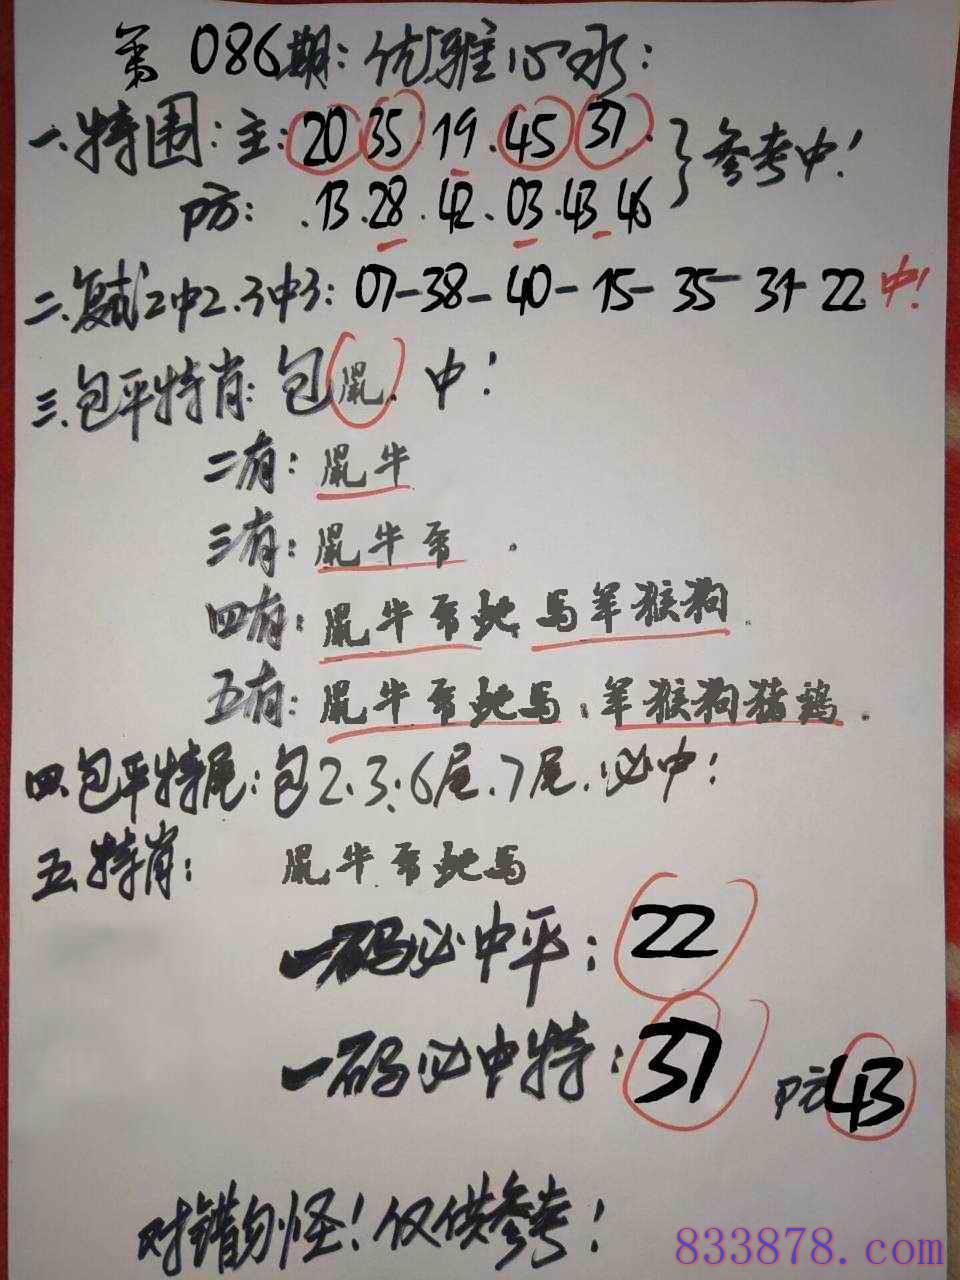 第086期:优雅心水:
一.特围:主:20 35.19.45 37.
防:.13.28.42.03.43 46
}参考中!
二.复试2中2.3中3:07-38-40-15-35-37-22 中!
三.包平特肖:包鼠.中!
二有:鼠牛
三有:鼠牛
四有:鼠牛 蛇 马羊猴狗.
五有:鼠牛 蛇马.羊猴狗猪鸡.
四.包平特尾:包2.3.6尾.7尾.必中!
五.特肖: 鼠牛 蛇马
一码必中平:22
一码必中特:37 防43
对错勿怪!仅供参考!
833878.com